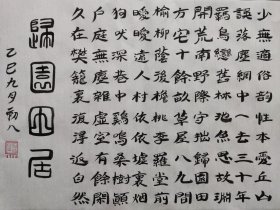 少無適俗韻性本愛丘山
誤落塵網中一去三十年
羈鳥戀舊林池魚思故淵
開荒南野際守拙歸園田
方宅十餘畝草屋八九間
榆柳蔭後簷桃李羅堂前
曖曖遠人村依依墟里煙
狗吠深巷中雞鳴桑樹顛
戶庭無塵雜虛室有餘閒
久在樊籠裏復得返自然
歸園田居
乙巳九月